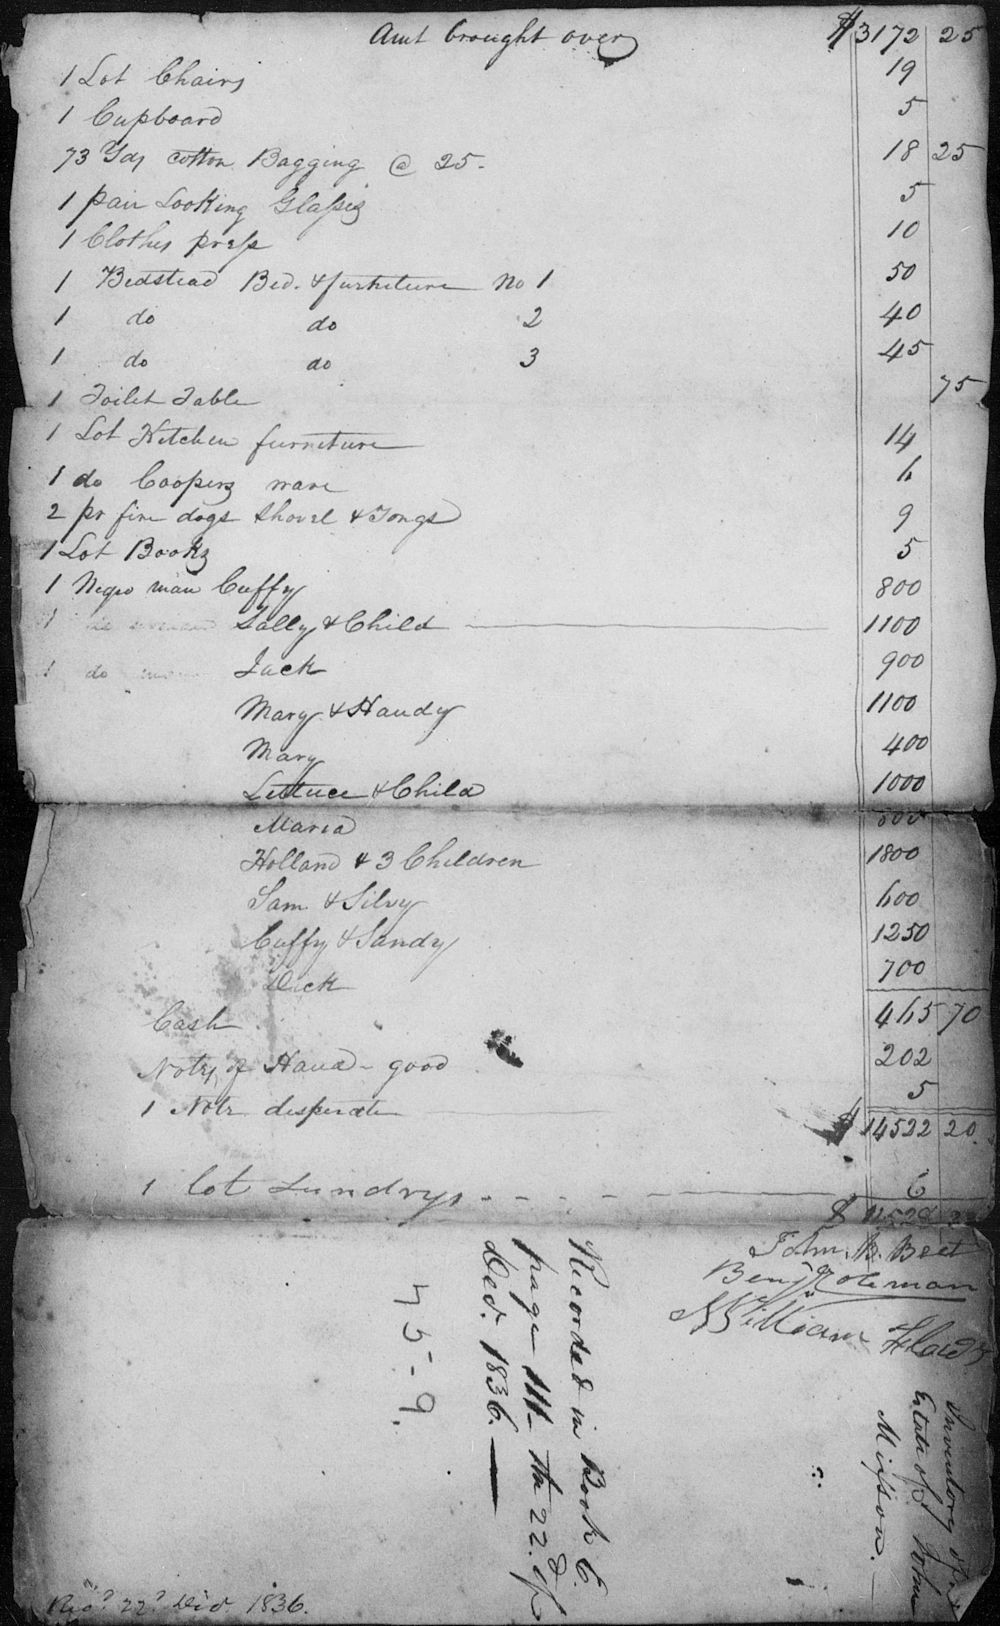 Amt brought over $3172 25
1 Lot Chairs 19
1 Cupboard 5
73 Yds cotton Bagging @ 25- 18 25
1 pair Looking Glasses 5
1 Clothes press 10
1 Bedstead Bed. & furniture No 1 50
1 do do 2 40
1 do do 3 45
1 Toilet Table 75
1 Lot Kitchen furniture 14
1 do Coopers ware 6
2 pr fire dogs Shovel & Tongs 9
1 Lot Books 5
1 Negro man Cuffy 800
1 do woman Sally & Child 1100
1 do man Jack 900
Mary & Handy 1100
Mary 400
Lettuce & Child 1000
Maria
Holland & 3 Children 1800
Sam & Silvy 600
Cuffy & Sandy 1250
Dick 700
Cash 465 70
Notes of Hand - good 202
1 Note desperate 5
$ 14522 20
1 lot Sundrys 6
$ 14528
John. B. Best
Benj Coleman
William
Recorded in Book C.
page the 22d of
Decr. 1836.
45-9.
Inventory of
Estate of John
Mixson.
Recd 22d Decr 1836.